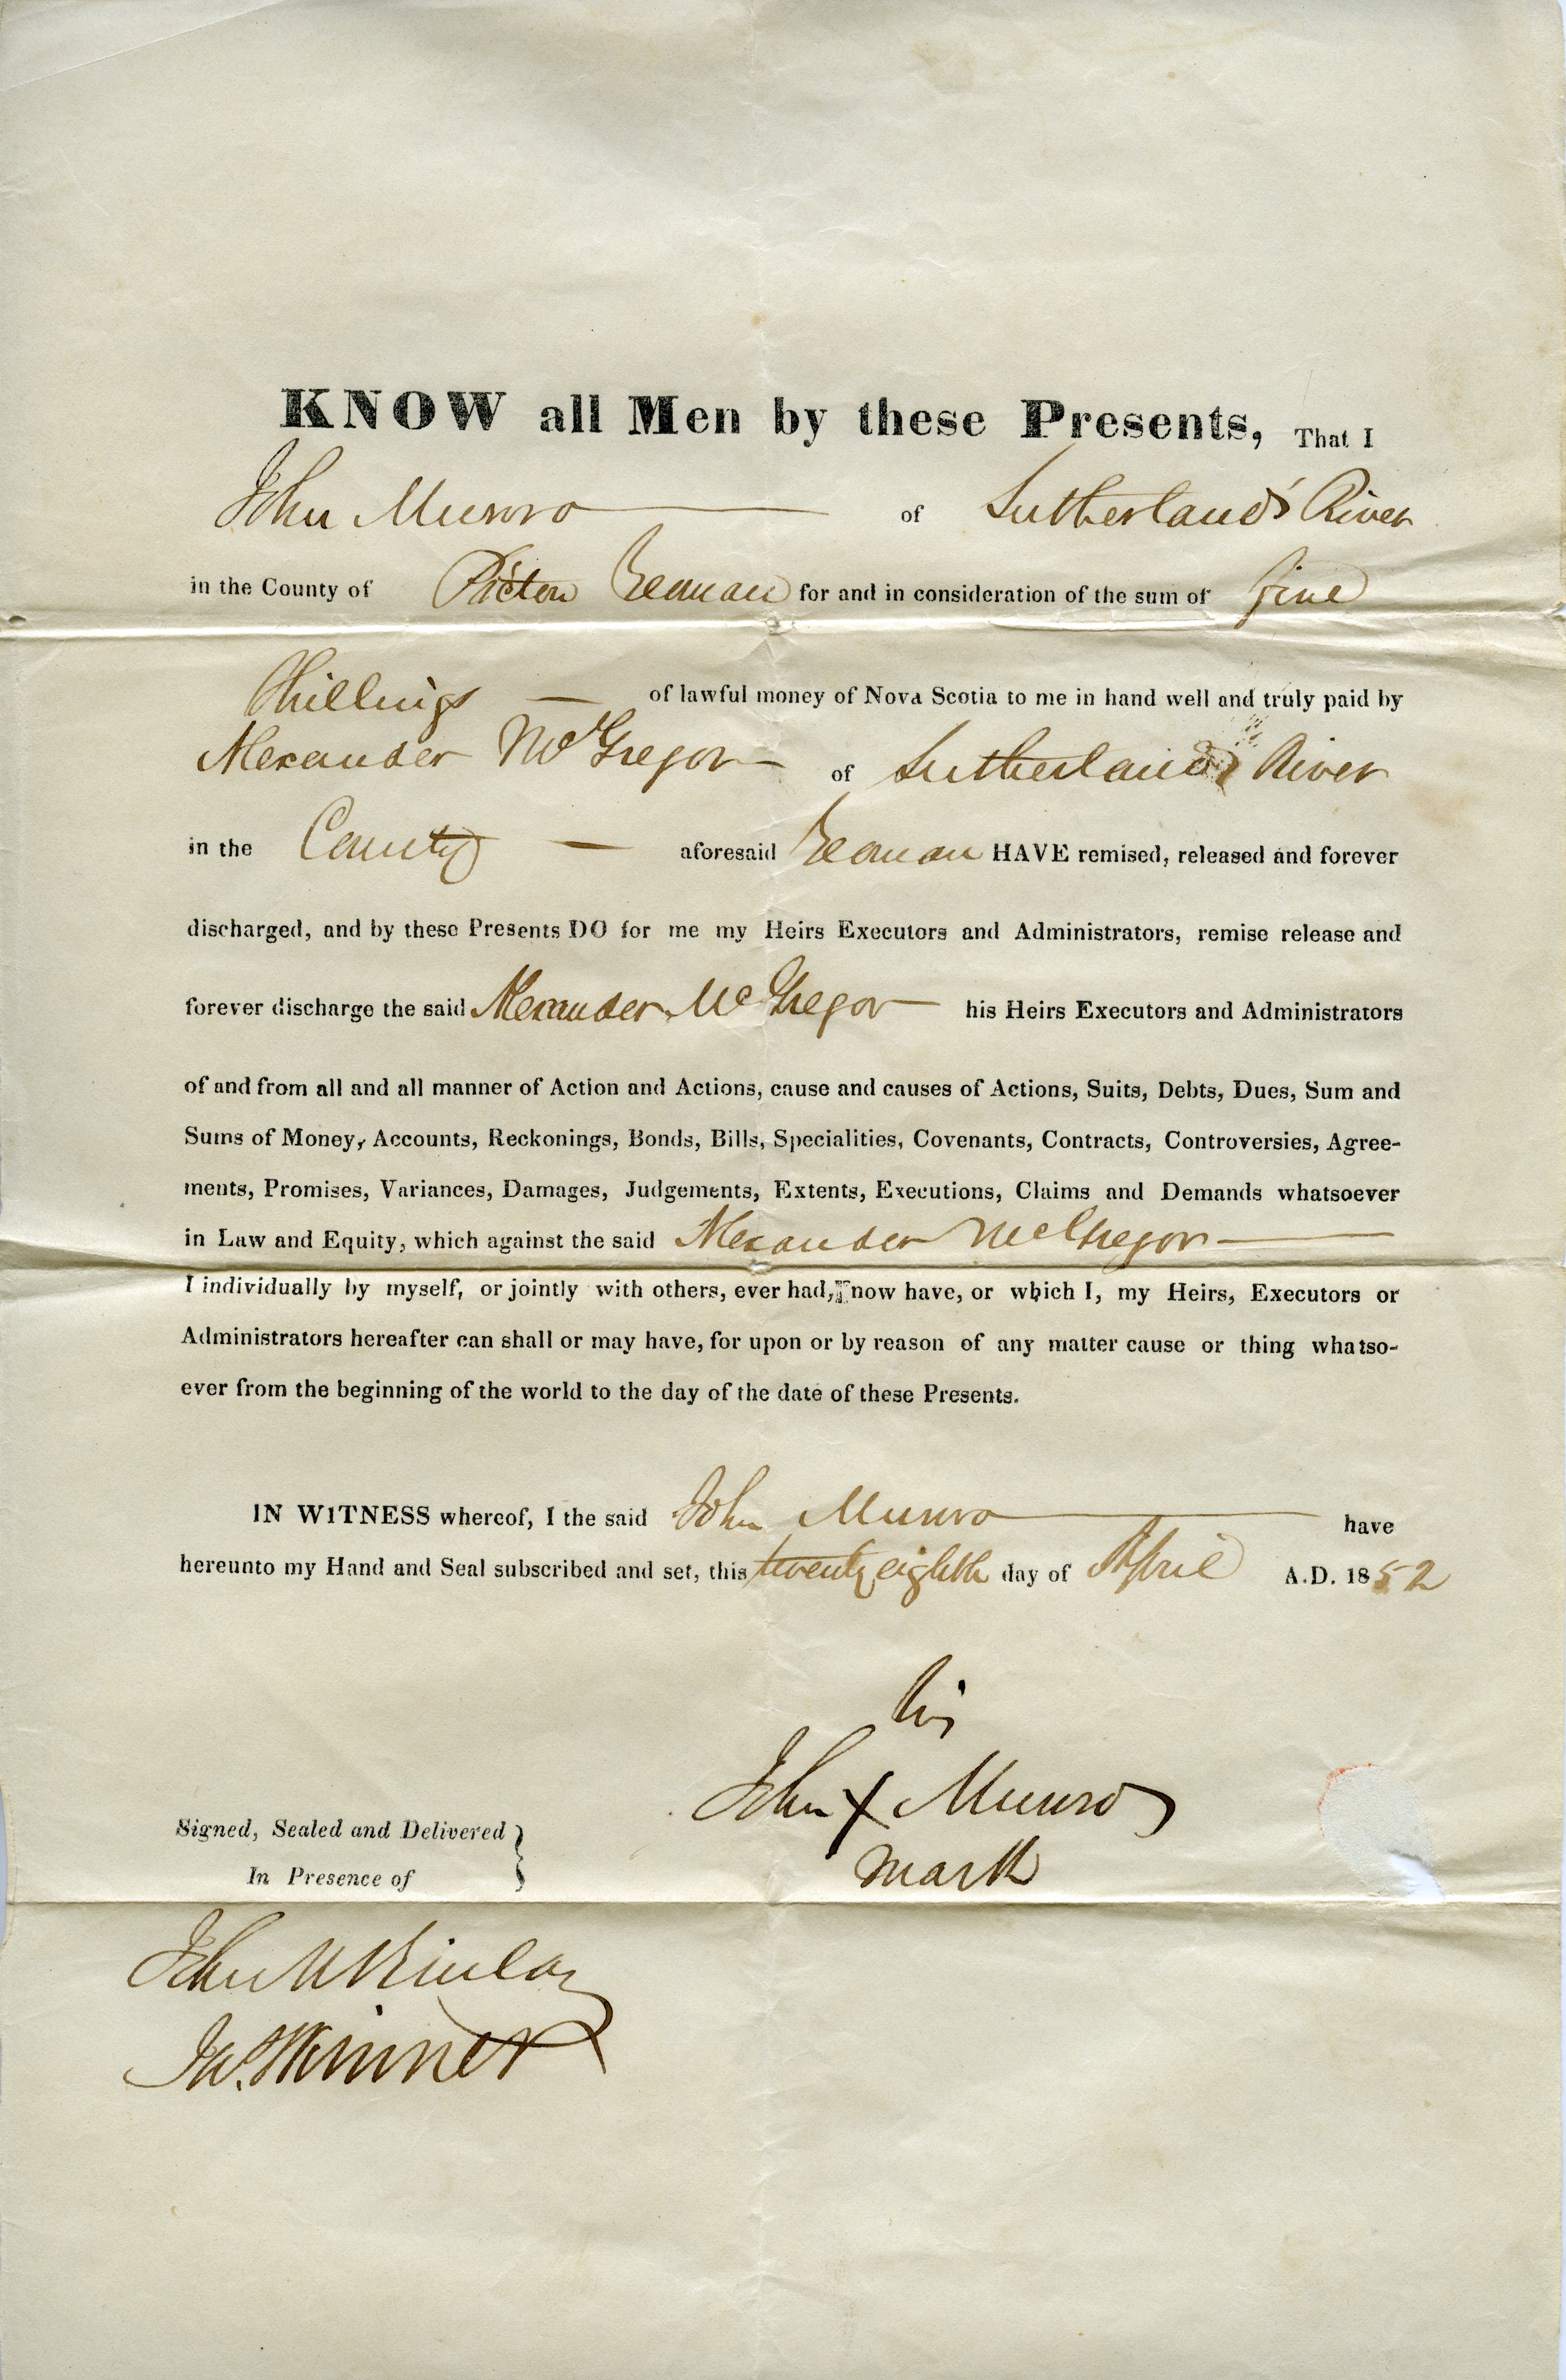 KNOW all Men by these Presents, That I
John Munro of Sutherlands River
in the County of Pictou Yeoman for and in consideration of the sum of five
Shillings of lawful money of Nova Scotia to me in hand well and truly paid by
Alexander McGregor of Sutherlands River
in the County aforesaid Yeoman HAVE remised, released and forever
discharged, and by these Presents DO for me my Heirs Executors and Administrators, remise release and
forever discharge the said Alexander McGregor his Heirs Executors and Administrators
of and from all and all manner of Action and Actions, cause and causes of Actions, Suits, Debts, Dues, Sum and
Sums of Money, Accounts, Reckonings, Bonds, Bills, Specialities, Covenants, Contracts, Controversies, Agree-
ments, Promises, Variances, Damages, Judgements, Extents, Executions, Claims and Demands whatsoever
in Law and Equity, which against the said Alexander McGregor
I individually by myself, or jointly with others, ever had, now have, or which I, my Heirs, Executors or
Administrators hereafter can shall or may have, for upon or by reason of any matter cause or thing whatso-
ever from the beginning of the world to the day of the date of these Presents.
IN WITNESS whereof, I the said John Munro have
hereunto my Hand and Seal subscribed and set, this twenty eighth day of April A.D. 1852
his
John X Munro
mark
Signed, Sealed and Delivered
In Presence of
John McKinlay
Jno. Skinner